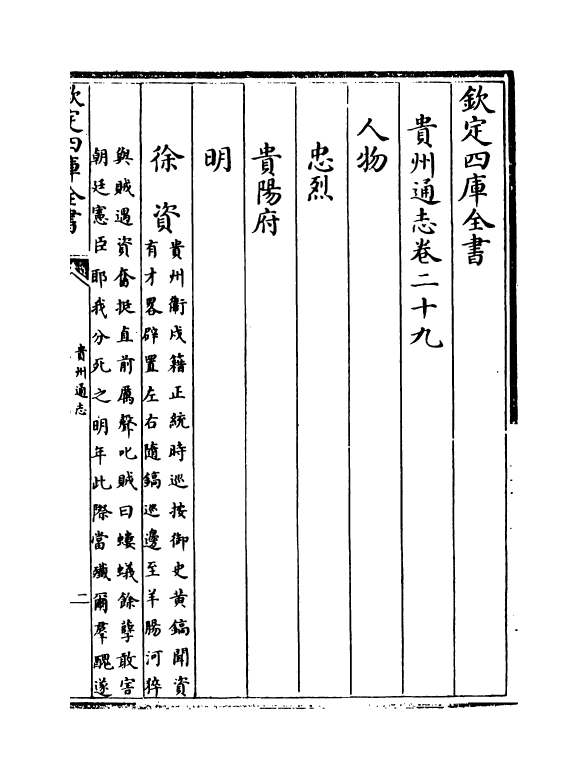 欽定四庫全書
貴州通志卷二十九
人物
忠烈
貴陽府
明
徐資
貴州衞戍籍正統時巡按御史黃鎬聞資
有才畧辟置左右隨鎬巡邊至羊腸河猝
與賊遇資奮挺直前厲聲叱賊曰螻蟻餘孽敢害
朝廷憲臣耶我分死之明年此際當殲爾羣醜遂
欽定四庫全書
貴州通志